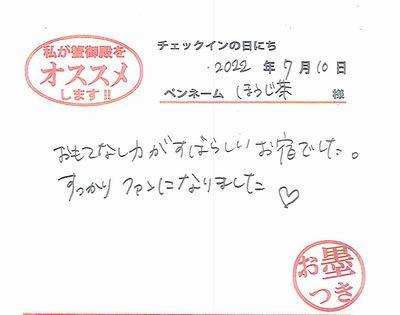 私が蟹御殿を
オススメ
します!!
チェックインの日にち
2022 年 7月 10 日
ペンネーム ほうじ茶 様
おもてなし力がすばらしいお宿でした。
すっかりファンになりました♡
お墨
つき